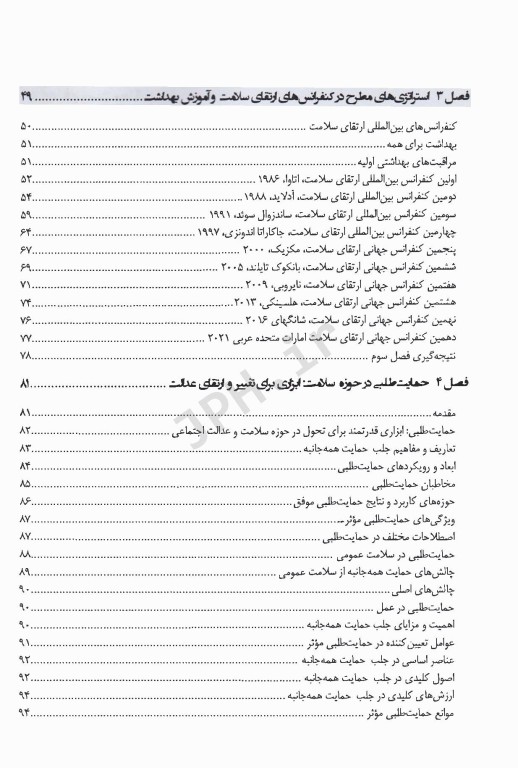 فصل ۳ استراتژی‌های مطرح در کنفرانس‌های ارتقای سلامت و آموزش بهداشت ۴۹
کنفرانس‌های بین‌المللی ارتقای سلامت ۵۰
بهداشت برای همه ۵۱
مراقبت‌های بهداشتی اولیه ۵۱
اولین کنفرانس بین‌المللی ارتقای سلامت، اتاوا، ۱۹۸۶ ۵۲
دومین کنفرانس بین‌المللی ارتقای سلامت، آدلاید، ۱۹۸۸ ۵۴
سومین کنفرانس بین‌المللی ارتقای سلامت، ساندزوال سوئد، ۱۹۹۱ ۵۹
چهارمین کنفرانس بین‌المللی ارتقای سلامت، جاکاراتا اندونزی، ۱۹۹۷ ۶۴
پنجمین کنفرانس جهانی ارتقای سلامت، مکزیک، ۲۰۰۰ ۶۷
ششمین کنفرانس جهانی ارتقای سلامت، بانکوک تایلند، ۲۰۰۵ ۶۹
هفتمین کنفرانس جهانی ارتقای سلامت، نایروبی، ۲۰۰۹ ۷۱
هشتمین کنفرانس جهانی ارتقای سلامت، هلسینکی، ۲۰۱۳ ۷۴
نهمین کنفرانس جهانی ارتقای سلامت، شانگهای ۲۰۱۶ ۷۶
دهمین کنفرانس جهانی ارتقای سلامت امارات متحده عربی ۲۰۲۱ ۷۷
نتیجه‌گیری فصل سوم ۷۸
فصل ۴ حمایت‌طلبی در حوزه سلامت: ابزاری برای تغییر و ارتقای عدالت ۸۱
مقدمه ۸۱
حمایت‌طلبی: ابزاری قدرتمند برای تحول در حوزه سلامت و عدالت اجتماعی ۸۲
تعاریف و مفاهیم جلب حمایت همه‌جانبه ۸۳
ابعاد و رویکردهای حمایت‌طلبی ۸۴
مخاطبان حمایت‌طلبی ۸۵
حوزه‌های کاربرد و نتایج حمایت‌طلبی موفق ۸۶
ویژگی‌های حمایت‌طلبی مؤثر ۸۷
اصطلاحات مختلف در حمایت‌طلبی ۸۷
حمایت‌طلبی در سلامت عمومی ۸۸
چالش‌های حمایت همه‌جانبه از سلامت عمومی ۸۹
چالش‌های اصلی ۹۰
حمایت‌طلبی در عمل ۹۰
اهمیت و مزایای جلب حمایت همه‌جانبه ۹۰
عوامل تعیین‌کننده در حمایت‌طلبی مؤثر ۹۱
عناصر اساسی در جلب حمایت همه‌جانبه ۹۲
اصول کلیدی در جلب حمایت همه‌جانبه ۹۲
ارزش‌های کلیدی در جلب حمایت همه‌جانبه ۹۴
موانع حمایت‌طلبی مؤثر ۹۴
JPH.ir